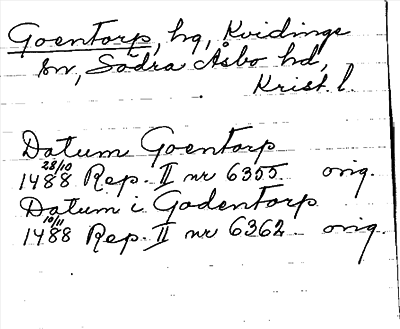 Goentorp, hg, Kvidinge
sn, Södra Åsbo hd,
Krist. l.
Datum Goentorp
1488 28/10 Rep. II nr 6355. orig.
Datum i Godentorp
1488 10/11 Rep. II nr 6362. orig.